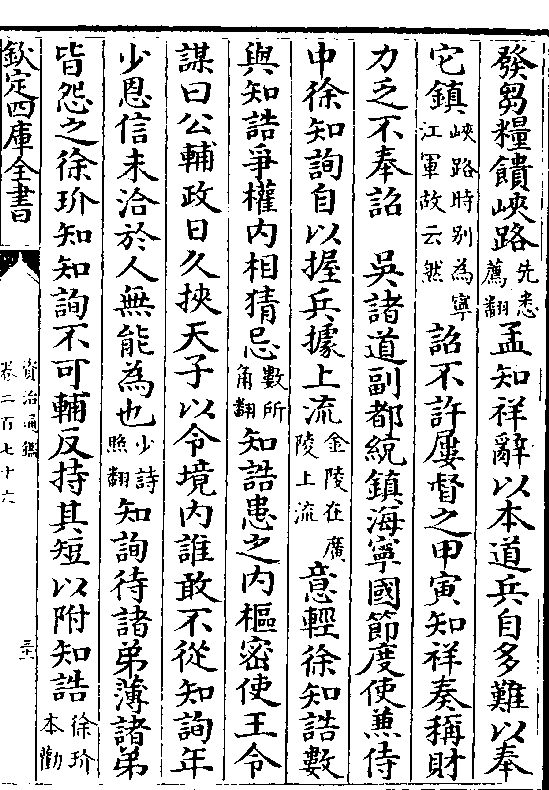 發芻糧饋峽路先悉薦翻孟知祥辭以本道兵自多難以奉
它鎮峽路時别為寧江軍故云然詔不許屢督之甲寅知祥奏稱財
力乏不奉詔　吳諸道副都統鎮海寧國節度使兼侍
中徐知詢自以握兵據上流金陵在廣陵上流意輕徐知誥數
與知誥爭權内相猜忌數所角翻知誥患之内樞密使王令
謀曰公輔政日久挾天子以令境内誰敢不從知詢年
少恩信未洽於人無能為也少詩照翻知詢待諸弟薄諸弟
皆怨之徐玠知知詢不可輔反持其短以附知誥徐玠本勸
欽定四庫全書
資治通鑑
卷二百七十六
三十一